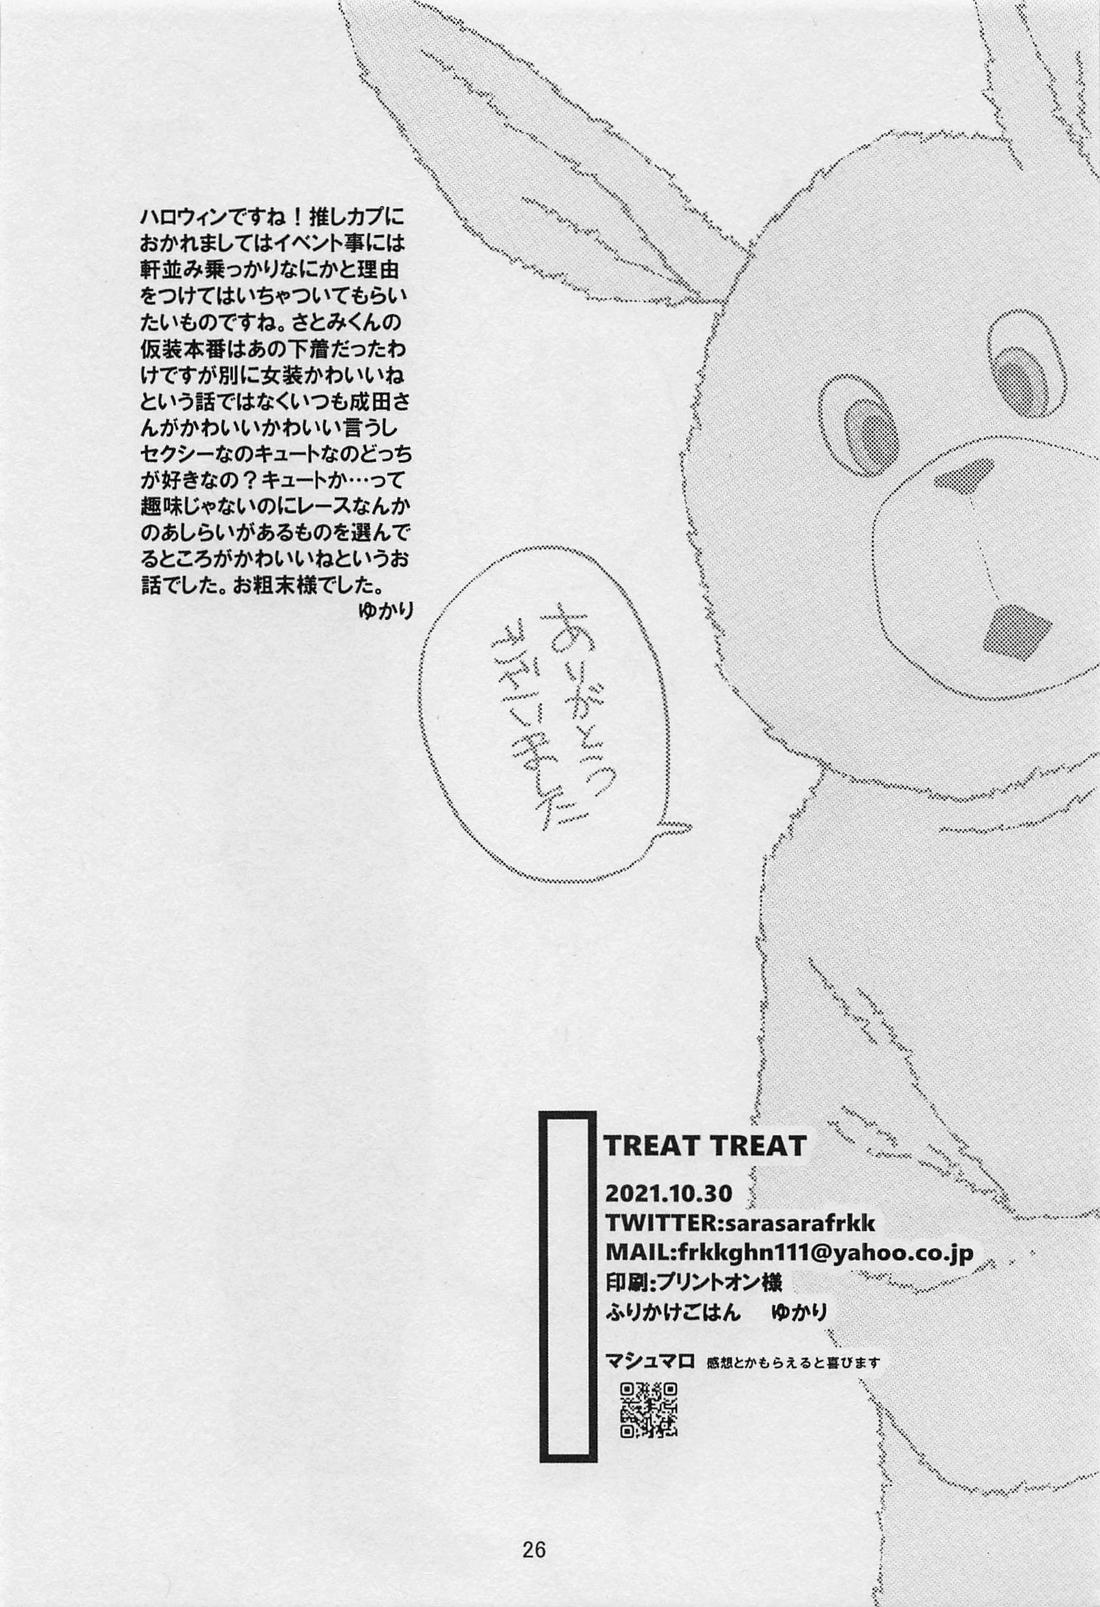 ハロウィンですね！推しカプに
おかれましてはイベント事には
軒並み乗っかりなにかと理由
をつけてはいちゃついてもらい
たいものですね。さとみくんの
仮装本番はあの下着だったわ
けですが別に女装かわいいね
という話ではなくいつも成田さ
んがかわいいかわいい言うし
セクシーなのキュートなのどっち
が好きなの？キュートか…って
趣味じゃないのにレースなんか
のあしらいがあるものを選んで
るところがかわいいねというお
話でした。お粗末様でした。
ゆかり
ありがとう
ございました
TREAT TREAT
2021.10.30
TWITTER:sarasarafrkk
MAIL:frkkghn111@yahoo.co.jp
印刷:プリントオン様
ふりかけごはん　ゆかり
マシュマロ 感想とかもらえると喜びます
26